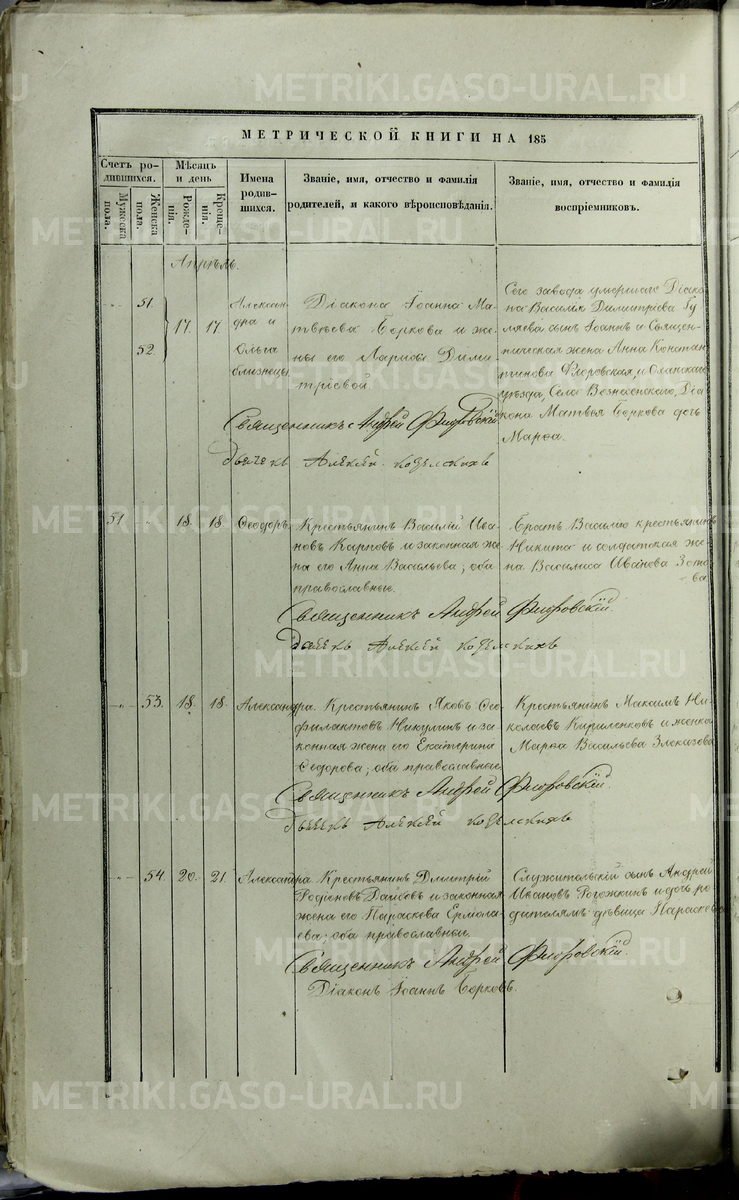 МЕТРИЧЕСКОЙ КНИГИ НА 185
Счетъ родившихся.
Мужеска пола.
Женска пола.
Мѣсяцъ и день
Рожденія.
Крещенія.
Имена родившихся.
Званіе, имя, отчество и фамилія родителей, и какого вѣроисповѣданія.
Званіе, имя, отчество и фамилія воспріемниковъ.
Апрѣль.
51.
52.
17. 17.
Александра и
Ольга
близнецы
Діакона Іоанна Матвѣева Боркова и жены его Ларисы Димитріевой
Сего завода умершаго Діакона Василія Димитріева Гуляева сынъ Іоаннъ и Священническая жена Анна Константинова Флоровская, и уѣзда, Села Вознесенскаго, Діакона Матвѣя Боркова дочь Марѳа.
Священникъ Андрей Флоровскій
Дьячекъ Алексій Козельскихъ
51 " 18. 18 Ѳеодоръ
Крестьянинъ Василій Ивановъ Карповъ и законная жена его Анна Васильева; оба православные.
Братъ Василію крестьянинъ Никита и солдатская жена Василиса Иванова Зотова
Священникъ Андрей Флоровскій.
Дьячекъ Алексій Козельскихъ
" 53. 18. 18. Александра.
Крестьянинъ Яковъ Ѳеофилактовъ Никулинъ и законная жена его Екатерина Ѳедорова; оба православные
Крестьянинъ Максимъ Николаевъ Кириленковъ и женка Марѳа Васильева Злоказова
Священникъ Андрей Флоровскій.
Дьячекъ Алексій Козельскихъ
" 54. 20. 21. Александра.
Крестьянинъ Дмитрій Родіоновъ и законная жена его Параскева Ермолаева; оба православные.
Служительскій сынъ Андрей Ивановъ Рогожкинъ и дочь родителямъ дѣвица Параскева
Священникъ Андрей Флоровскій.
Діаконъ Іоаннъ Борковъ.
METRIKI.GASO-URAL.RU